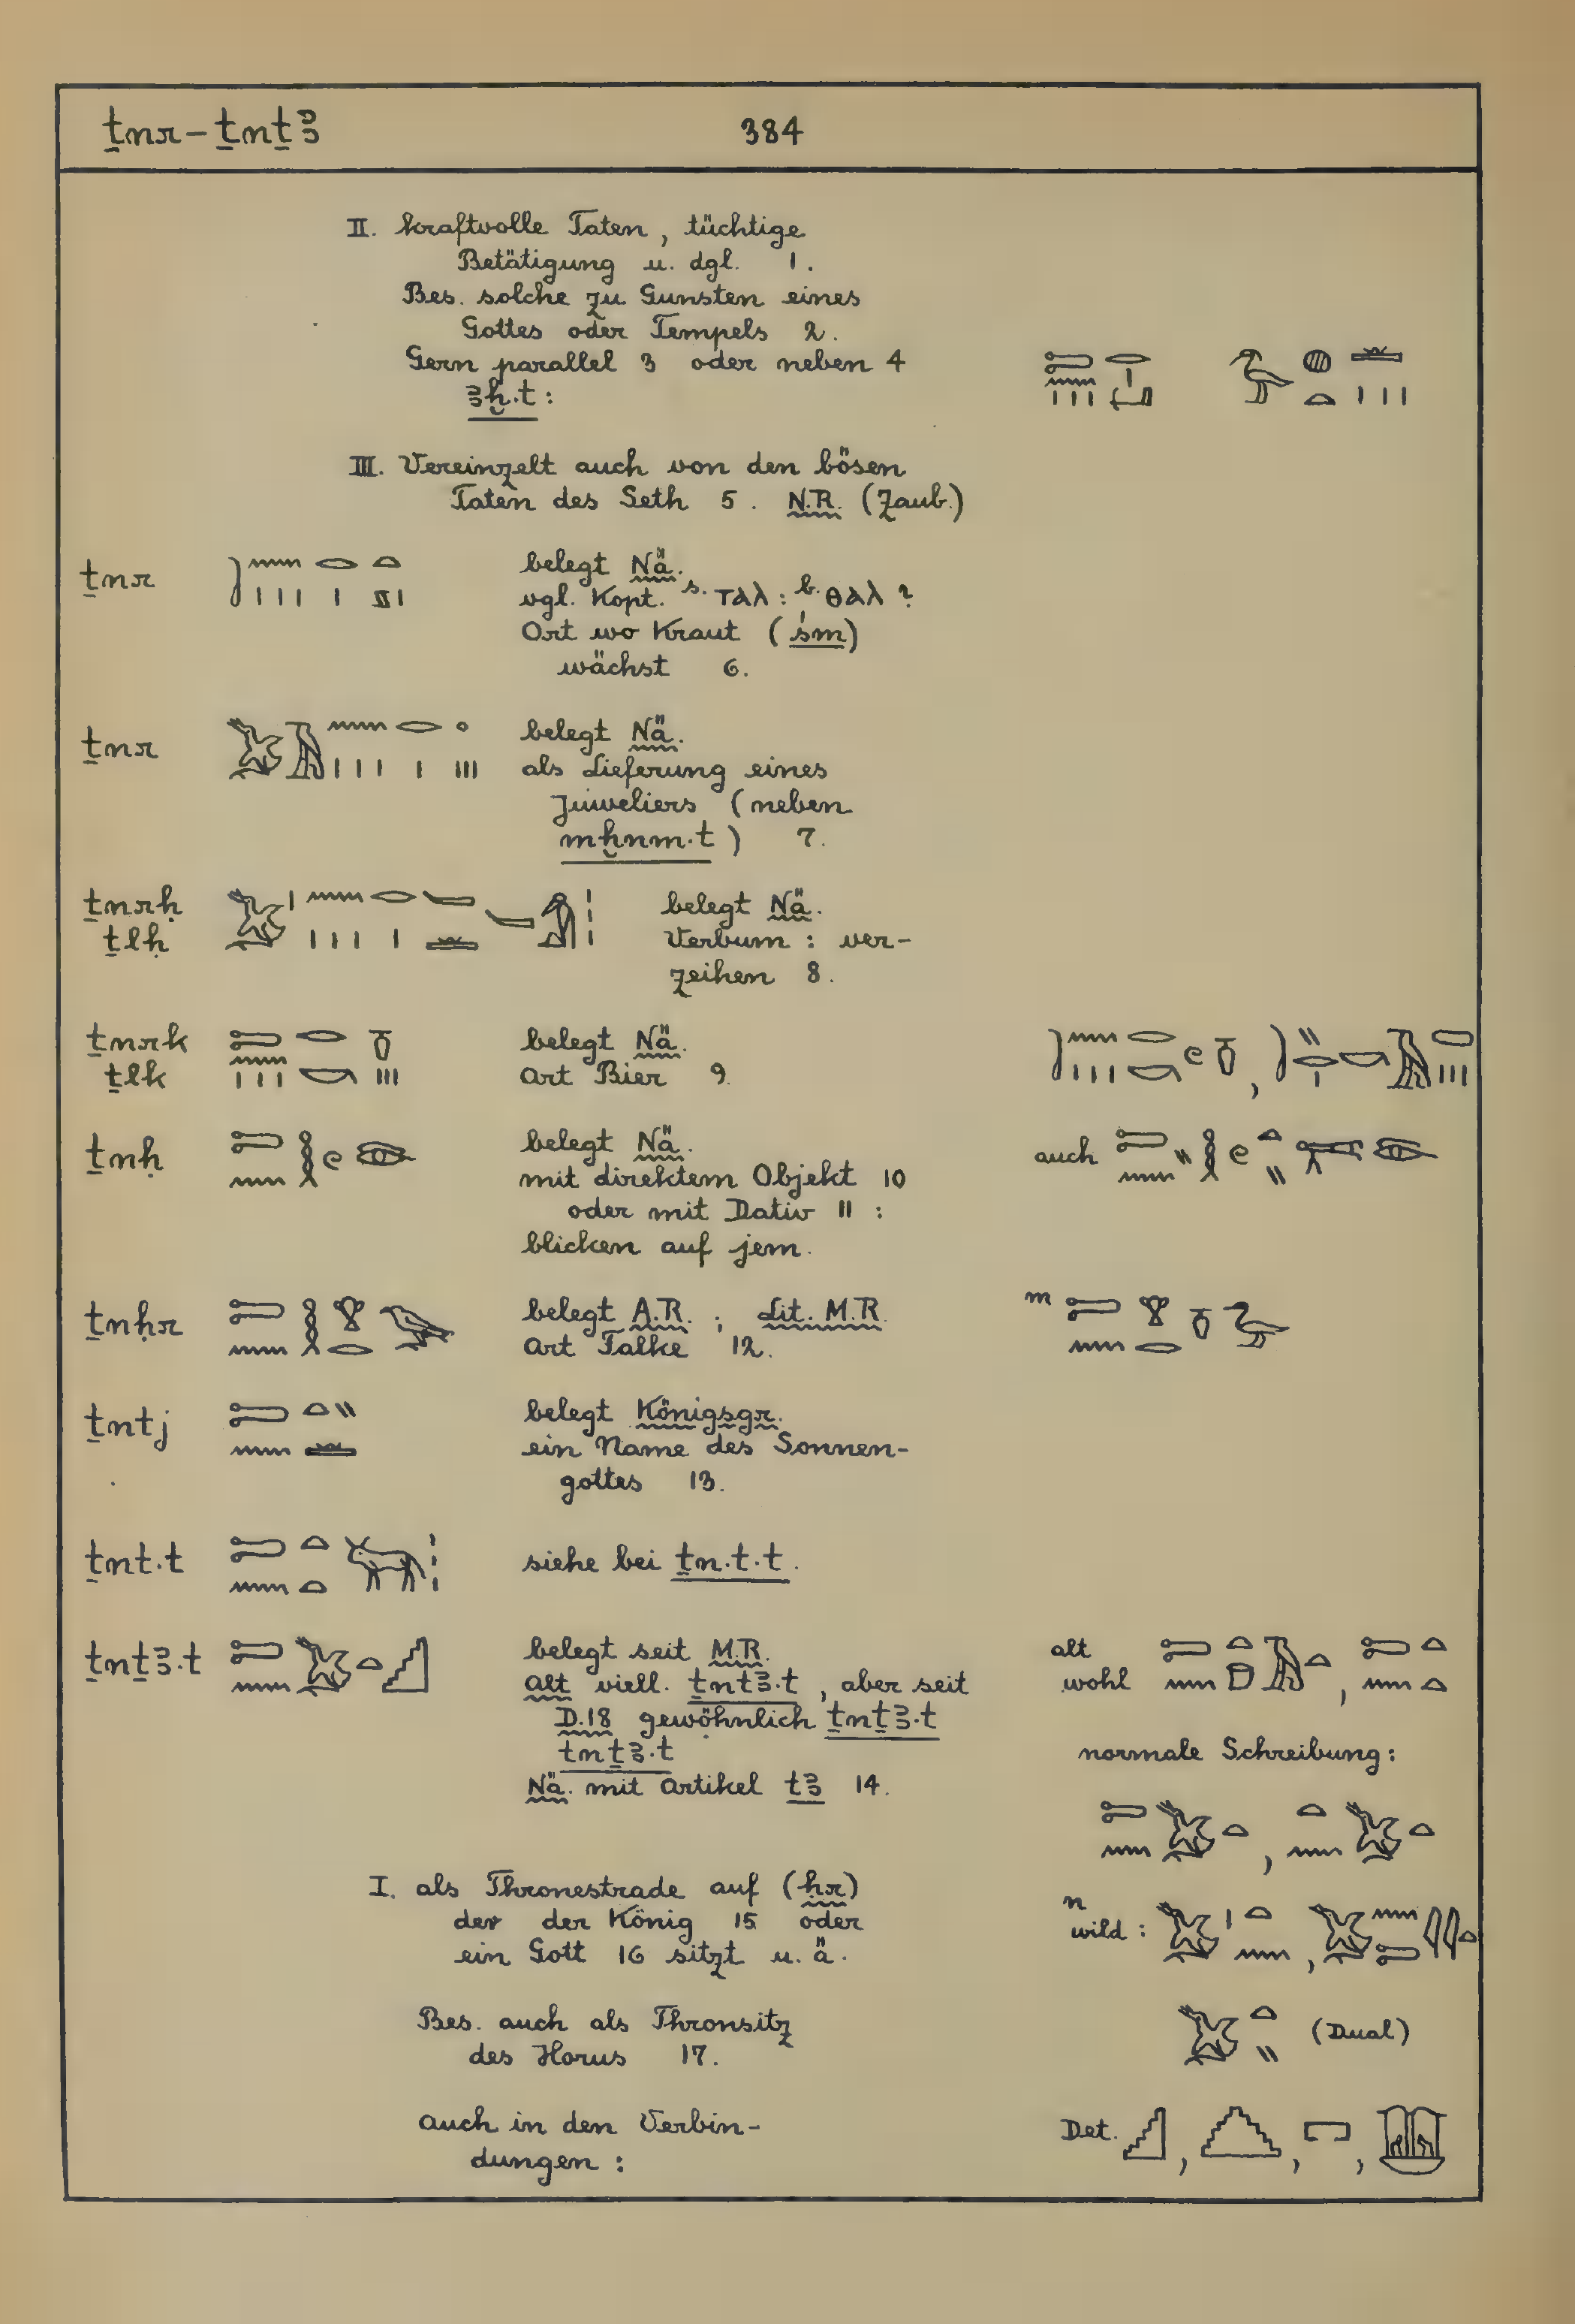 ṯnr – ṯnṯꜣ 384
II. kraftvolle Taten, tüchtige
Betätigung u. dgl. 1.
Bes. solche zu Gunsten eines
Gottes oder Tempels 2.
Gern parallel 3 oder neben 4
ꜣḫ.t :
III. Vereinzelt auch von den bösen
Taten des Seth 5. N.R. (Zaub.)
ṯnr belegt Nä.
vgl. Kopt. s. ⲧⲁⲗ : b. ⲑⲁⲗ ?
Ort wo Kraut (śm)
wächst 6.
ṯnr belegt Nä.
als Lieferung eines
Juweliers (neben
mḫnm.t) 7.
ṯnrḥ belegt Nä.
ṯlḥ Verbum : ver-
zeihen 8.
ṯnrk belegt Nä.
ṯlk Art Bier 9.
ṯnḥ belegt Nä. auch
mit direktem Objekt 10
oder mit Dativ 11 :
blicken auf jem.
ṯnḥr belegt A.R. ; Lit. M.R. m
Art Falke 12.
ṯntj belegt Königsgr.
ein Name des Sonnen-
gottes 13.
ṯnt.t siehe bei ṯn.t.t.
ṯnṯꜣ.t belegt seit M.R. alt
Alt viell. ṯntꜣ.t, aber seit wohl
D.18 gewöhnlich ṯnṯꜣ.t
tnṯꜣ.t normale Schreibung :
Nä. mit Artikel tꜣ 14.
I. als Thronestrade auf (ḥr)
der der König 15 oder n wild :
ein Gott 16 sitzt u. ä.
Bes. auch als Thronsitz (Dual)
des Horus 17.
auch in den Verbin- Det.
dungen :